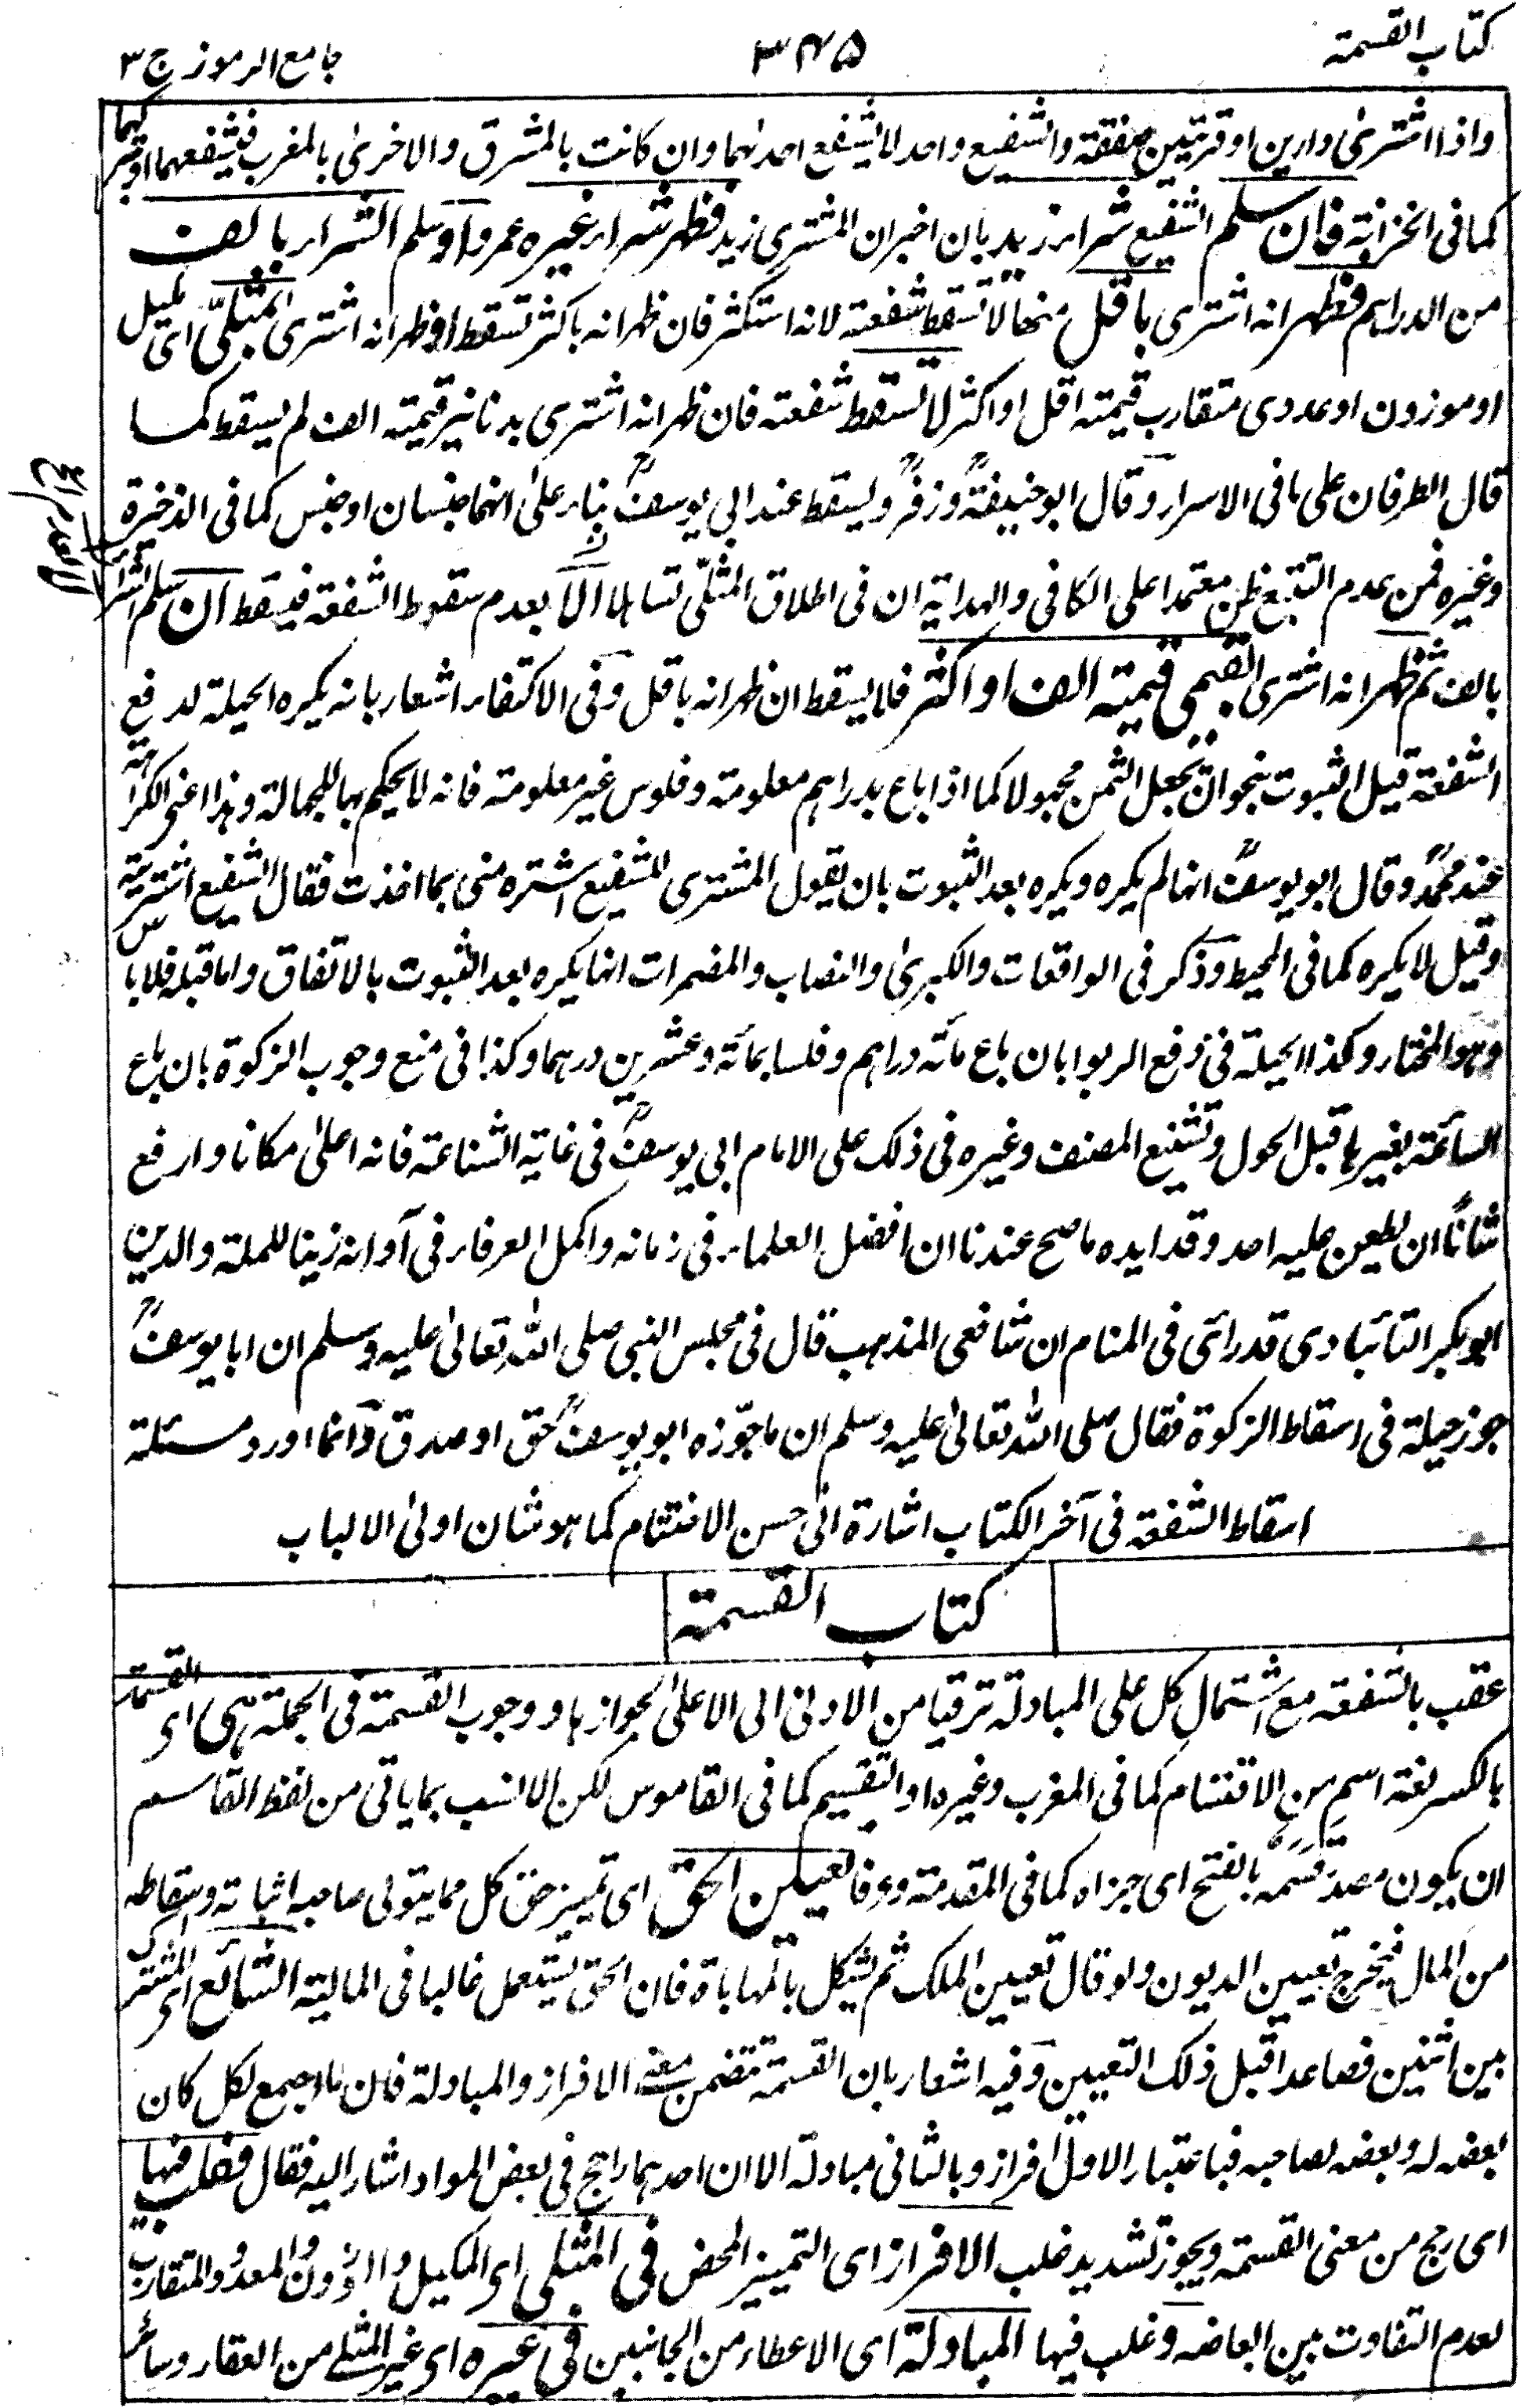 كتاب القسمة
٣٤٥
جامع الرموز ج ٣
واذا اشترى دارين او قريتين صفقة والشفيع واحد لا يشفع احدهما وان كانت بالمشرق والاخرى بالمغرب فيشفعهما او يتركهما
كما فى الخزانة فان سلم الشفيع شراء زيد بان اخبر ان المشترى زيد فظهر شراء غيره عمرو او سلم الشراء بالف
من الدراهم فظهر انه اشترى باقل منها لا تسقط شفعته لانه استكثر فان ظهر انه باكثر تسقط او ظهر انه اشترى بمثلىّ اى مكيل
او موزون او عددى متقارب قيمته اقل او اكثر لا تسقط شفعته فان ظهر انه اشترى بدنانير قيمته الف لم يسقط كما
قال الطرفان على ما فى الاسرار وقال ابو حنيفةؒ وزفرؒ ويسقط عند ابى يوسفؒ بناء على انهما جنسان او جنس كما فى الذخيرة
وغيره فمن عدم التتبع ظن معتمدا على الكافى والهداية ان فى اطلاق المثلىّ تساهلا الا بعدم سقوط الشفعة فيسقط ان سلم الشراء
بالف ثم ظهر انه اشترى بقيمى قيمته الف او اكثر فلا يسقط ان ظهر انه باقل وفى الاكتفاء اشعار بانه يكره الحيلة لدفع
الشفعة قبل الثبوت بنحو ان يجعل الثمن مجهولا كما اذا باع بدراهم معلومة وفلوس غير معلومة فانه لا يحكم بها للجهالة وهذا اعنى الكراهة
عند محمدؒ وقال ابو يوسفؒ انها لم يكره ويكره بعد الثبوت بان يقول المشترى للشفيع اشتره منى بما اخذت فقال الشفيع اشتريته
وقيل لا يكره كما فى المحيط وذكر فى الواقعات والكبرى والنصاب والمضمرات انها يكره بعد الثبوت بالاتفاق واما قبله فلا باس
وهو المختار وكذا الحيلة فى دفع الربوا بان باع مائة دراهم وفلسا بمائة وعشرين درهما وكذا فى منع وجوب الزكوة بان باع
السائمة بغيرها قبل الحول وتشنيع المصنف وغيره فى ذلك على الامام ابى يوسفؒ فى غاية الشناعة فانه اعلى مكانا وارفع
شانًا ان يطعن عليه احد وقد ايده ما صح عندنا ان افضل العلماء فى زمانه واكمل العرفاء فى آوانه زينا للملة والدين
ابو بكر التائبادى قد رائى فى المنام ان شافعى المذهب قال فى مجلس النبى صلى الله تعالى عليه وسلم ان ابا يوسفؒ
جوز حيلة فى اسقاط الزكوة فقال صلى الله تعالى عليه وسلم ان ما جوّزه ابو يوسفؒ حق او صدق وانما اورد مسئلة
اسقاط الشفعة فى آخر الكتاب اشارة الى حسن الاختتام كما هو شان اولى الالباب
كتاب القسمة
عقب بالشفعة مع اشتمال كل على المبادلة ترقيا من الادنى الى الاعلى لجوازها ووجوب القسمة فى الجملة هى اى القسمة
بالكسر لغة اسم من الاقتسام كما فى المغرب وغيره او التقسيم كما فى القاموس لكن الانسب بما ياتى من لفظ القاسم
ان يكون مصدر قسمه بالفتح اى جزاه كما فى المقدمة وعرفا تعيين الحق اى تمييز حق كل مما يتولى صاحبه اثباته واسقاطه
من المال فيخرج تعيين الديون ولو قال تعيين الملك ثم يشكل بالمهاباة فان الحق يستعمل غالبا فى المالية الشائع اى المشترك
بين اثنين فصاعدا قبل ذلك التعيين وفيه اشعار بان القسمة تتضمن معنى الافراز والمبادلة فان ما اجمع لكل كان
بعضه له وبعضه لصاحبه فباعتبار الاول افراز وبالثانى مبادلة الا ان احدهما راجح فى بعض المواد اشار اليه فقال فغلب فيها
اى رجح من معنى القسمة ويجوز تشديد غلب الافراز اى التمييز المحض فى المثلى اى المكيل والموزون والمعدود المتقارب
لعدم التفاوت بين ابعاضه وغلب فيها المبادلة اى الاعطاء من الجانبين فى غيره اى غير المثلے من العقار وسائر